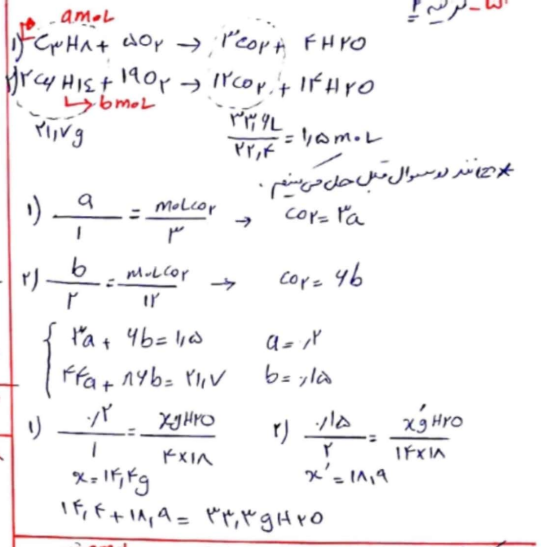 a mol
۱) C۳H۸ + ۵O۲ → ۳CO۲ + ۴H۲O
۲) ۲C۶H۱۴ + ۱۹O۲ → ۱۲CO۲ + ۱۴H۲O
b mol
۲۱٫۷g ۳۳٫۶L / ۲۲٫۴ = ۱٫۵ mol
* مانند سوال قبل حل می‌کنیم.
۱) a / ۱ = mol CO۲ / ۳ → CO۲ = ۳a
۲) b / ۲ = mol CO۲ / ۱۲ → CO۲ = ۶b
۳a + ۶b = ۱٫۵ a = ۰٫۲
۴۴a + ۸۶b = ۲۱٫۷ b = ۰٫۱۵
۱) ۰٫۲ / ۱ = xg H۲O / ۴×۱۸ ۲) ۰٫۱۵ / ۲ = x′g H۲O / ۱۴×۱۸
x = ۱۴٫۴g x′ = ۱۸٫۹
۱۴٫۴ + ۱۸٫۹ = ۳۳٫۳ g H۲O